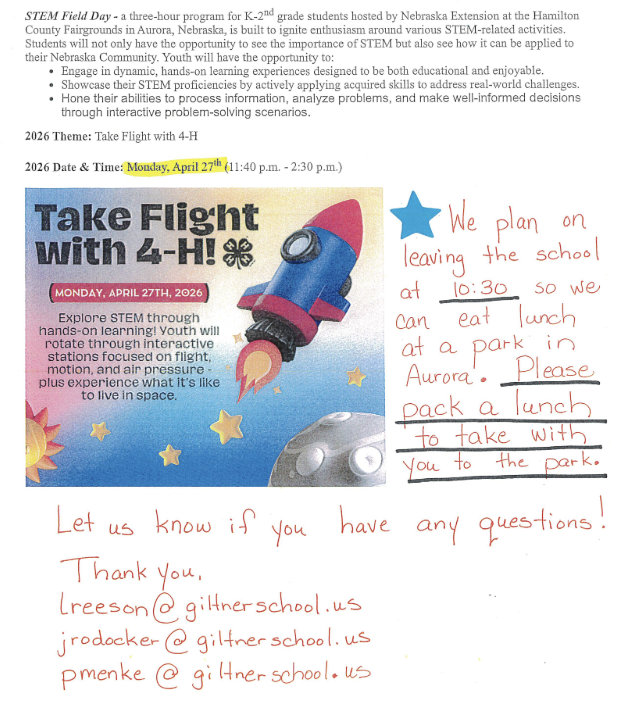 STEM Field Day - a three-hour program for K-2nd grade students hosted by Nebraska Extension at the Hamilton
County Fairgrounds in Aurora, Nebraska, is built to ignite enthusiasm around various STEM-related activities.
Students will not only have the opportunity to see the importance of STEM but also see how it can be applied to
their Nebraska Community. Youth will have the opportunity to:
• Engage in dynamic, hands-on learning experiences designed to be both educational and enjoyable.
• Showcase their STEM proficiencies by actively applying acquired skills to address real-world challenges.
• Hone their abilities to process information, analyze problems, and make well-informed decisions
through interactive problem-solving scenarios.
2026 Theme: Take Flight with 4-H
2026 Date & Time: Monday, April 27th (11:40 p.m. - 2:30 p.m.)
Take Flight
with 4-H!
MONDAY, APRIL 27TH, 2026
Explore STEM through
hands-on learning! Youth will
rotate through interactive
stations focused on flight,
motion, and air pressure -
plus experience what it's like
to live in space.
We plan on
leaving the school
at 10:30 so we
can eat lunch
at a park in
Aurora. Please
pack a lunch
to take with
you to the park.
Let us know if you have any questions!
Thank you,
lreeson@giltnerschool.us
jrodocker@giltnerschool.us
pmenke@giltnerschool.us